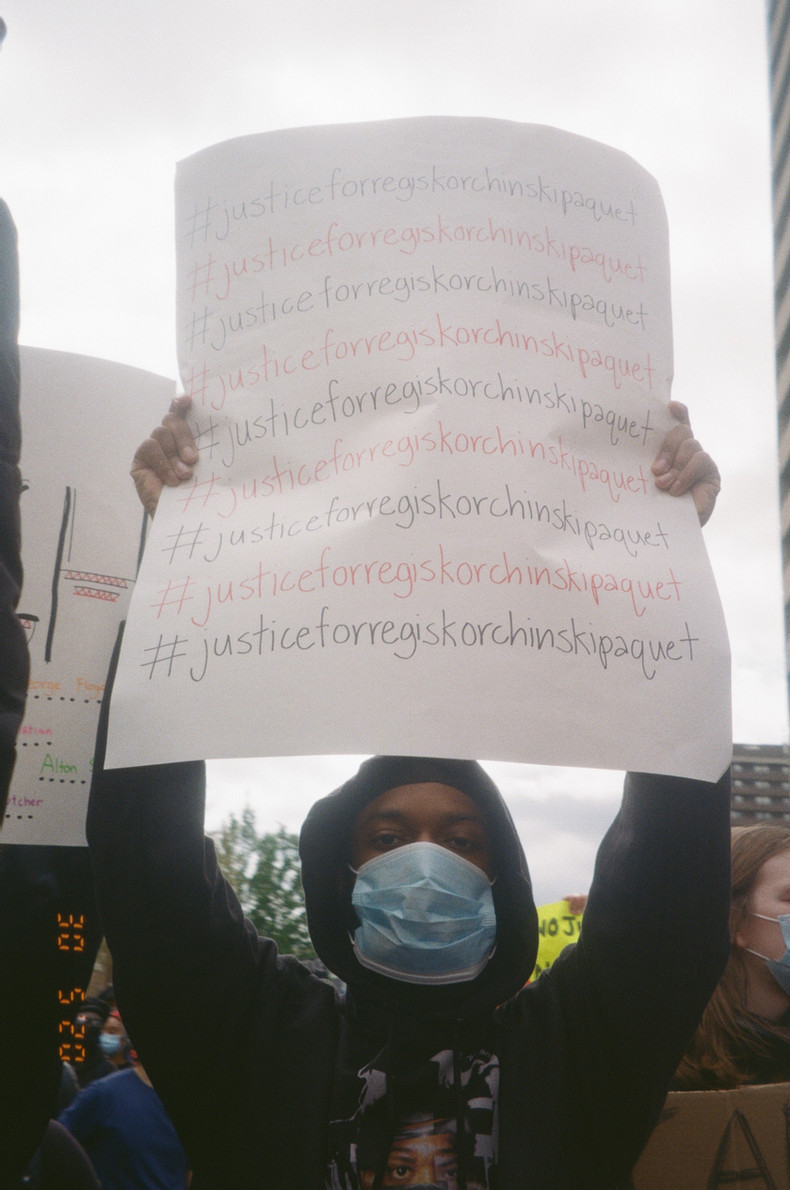 #justiceforregiskorchinskipaquet
#justiceforregiskorchinskipaquet
#justiceforregiskorchinskipaquet
#justiceforregiskorchinskipaquet
#justiceforregiskorchinskipaquet
#justiceforregiskorchinskipaquet
#justiceforregiskorchinskipaquet
#justiceforregiskorchinskipaquet
#justiceforregiskorchinskipaquet
Floyd
Alton
A